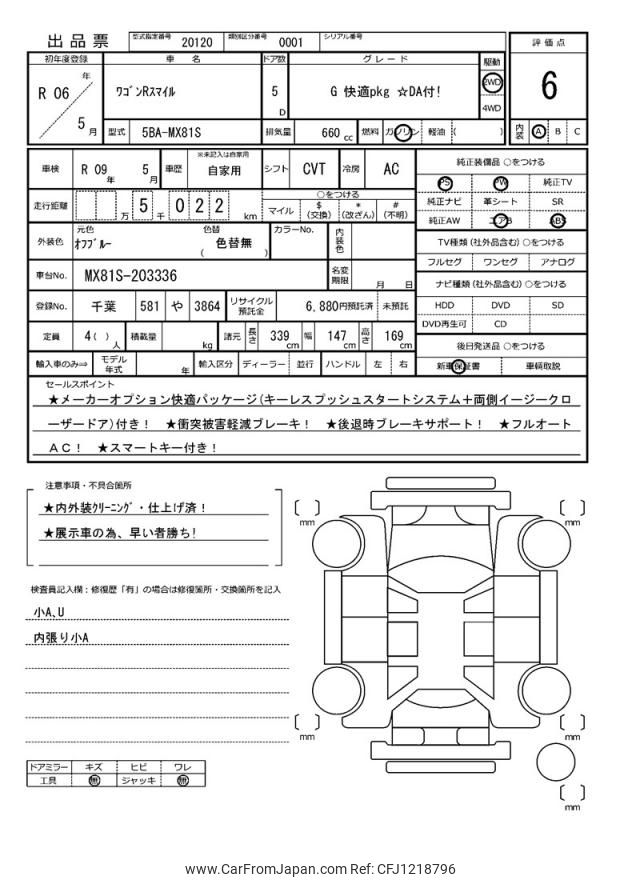 出品票 型式指定番号 20120 類別区分番号 0001 シリアル番号
評価点
初年度登録 車名 ドア数 グレード 駆動
R 06 年 5 月
ワゴンRスマイル 5 D G 快適pkg ☆DA付! 2WD 4WD
6
型式 5BA-MX81S 排気量 660 cc 燃料 ガソリン 軽油 ( )
内装 A B C
車検 R 09 年 5 月 車歴 ※未記入は自家用 自家用 シフト CVT 冷房 AC
純正装備品 ○をつける
PS PW 純正TV
走行距離 万 5 千 0 2 2 km
○をつける
マイル $(交換) *(改ざん) #(不明)
純正ナビ 革シート SR
純正AW エアB ABS
外装色 元色 オフブルー 色替 ( 色替無 ) カラーNo. 内装色
TV種類(社外品含む) ○をつける
フルセグ ワンセグ アナログ
車台No. MX81S-203336 名変期限 月 日
ナビ種類(社外品含む) ○をつける
登録No. 千葉 581 や 3864 リサイクル預託金 6,880円預託済 未預託
HDD DVD SD
DVD再生可 CD
定員 4( )人 積載量 kg 諸元 長さ 339 cm 幅 147 cm 高さ 169 cm
後日発送品 ○をつける
輸入車のみ⇒ モデル年式 年 輸入区分 ディーラー 並行 ハンドル 左 右
新車保証書 車輌取説
セールスポイント
★メーカーオプション快適パッケージ(キーレスプッシュスタートシステム+両側イージークロ
ーザードア)付き! ★衝突被害軽減ブレーキ! ★後退時ブレーキサポート! ★フルオート
AC! ★スマートキー付き!
注意事項・不具合箇所
★内外装クリーニング・仕上げ済!
★展示車の為、早い者勝ち!
検査員記入欄:修復歴「有」の場合は修復箇所・交換箇所を記入
小A、U
内張り小A
ドアミラー キズ ヒビ ワレ
工具 無 ジャッキ 無
mm mm
mm mm
mm
www.CarFromJapan.com Ref: CFJ1218796